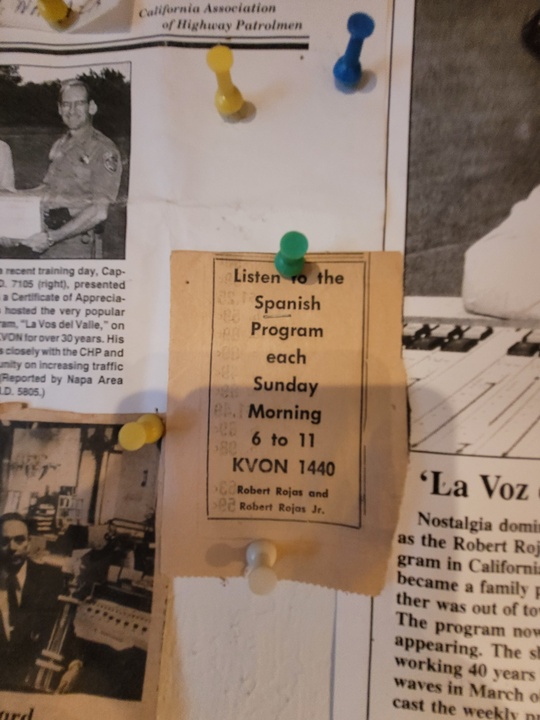 California Association
of Highway Patrolmen
a recent training day, Cap-
D. 7105 (right), presented
a Certificate of Apprecia-
hosted the very popular
ram, "La Vos del Valle," on
KVON for over 30 years. His
s closely with the CHP and
unity on increasing traffic
(Reported by Napa Area
I.D. 5805.)
Listen to the
Spanish
Program
each
Sunday
Morning
6 to 11
KVON 1440
Robert Rojas and
Robert Rojas Jr.
'La Voz
Nostalgia domi
as the Robert Roj
gram in California
became a family p
ther was out of to
The program now
appearing. The s
working 40 years
waves in March o
cast the weekly p